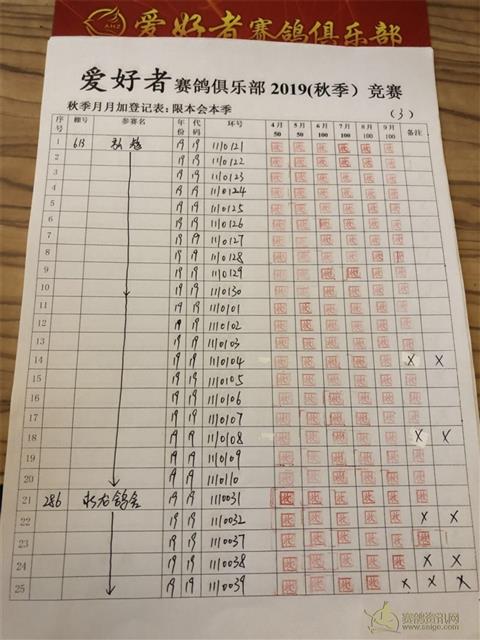 爱好者赛鸽俱乐部
爱好者 赛鸽俱乐部 2019(秋季）竞赛
秋季月月加登记表：限本会本季 （3）
序号 棚号 参赛名 年份 代码 环号 4月50 5月50 6月100 7月100 8月100 9月100 备注
1 613 19 19 1110121
2 19 19 1110122
3 19 19 1110123
4 19 19 1110124
5 19 19 1110125
6 19 19 1110126
7 19 19 1110127
8 19 19 1110128
9 19 19 1110129
10 19 19 1110130
11 19 19 1110101
12 19 19 1110102
13 19 19 1110103
14 19 19 1110104 X X
15 19 19 1110105
16 19 19 1110106
17 19 19 1110107
18 19 19 1110108 X X
19 19 19 1110109
20 19 19 1110110
21 286 19 19 1110031
22 19 19 1110032 X X
23 19 19 1110037 X
24 19 19 1110038 X X
25 19 19 1110039 X X X
赛鸽资讯网
www.saige.com